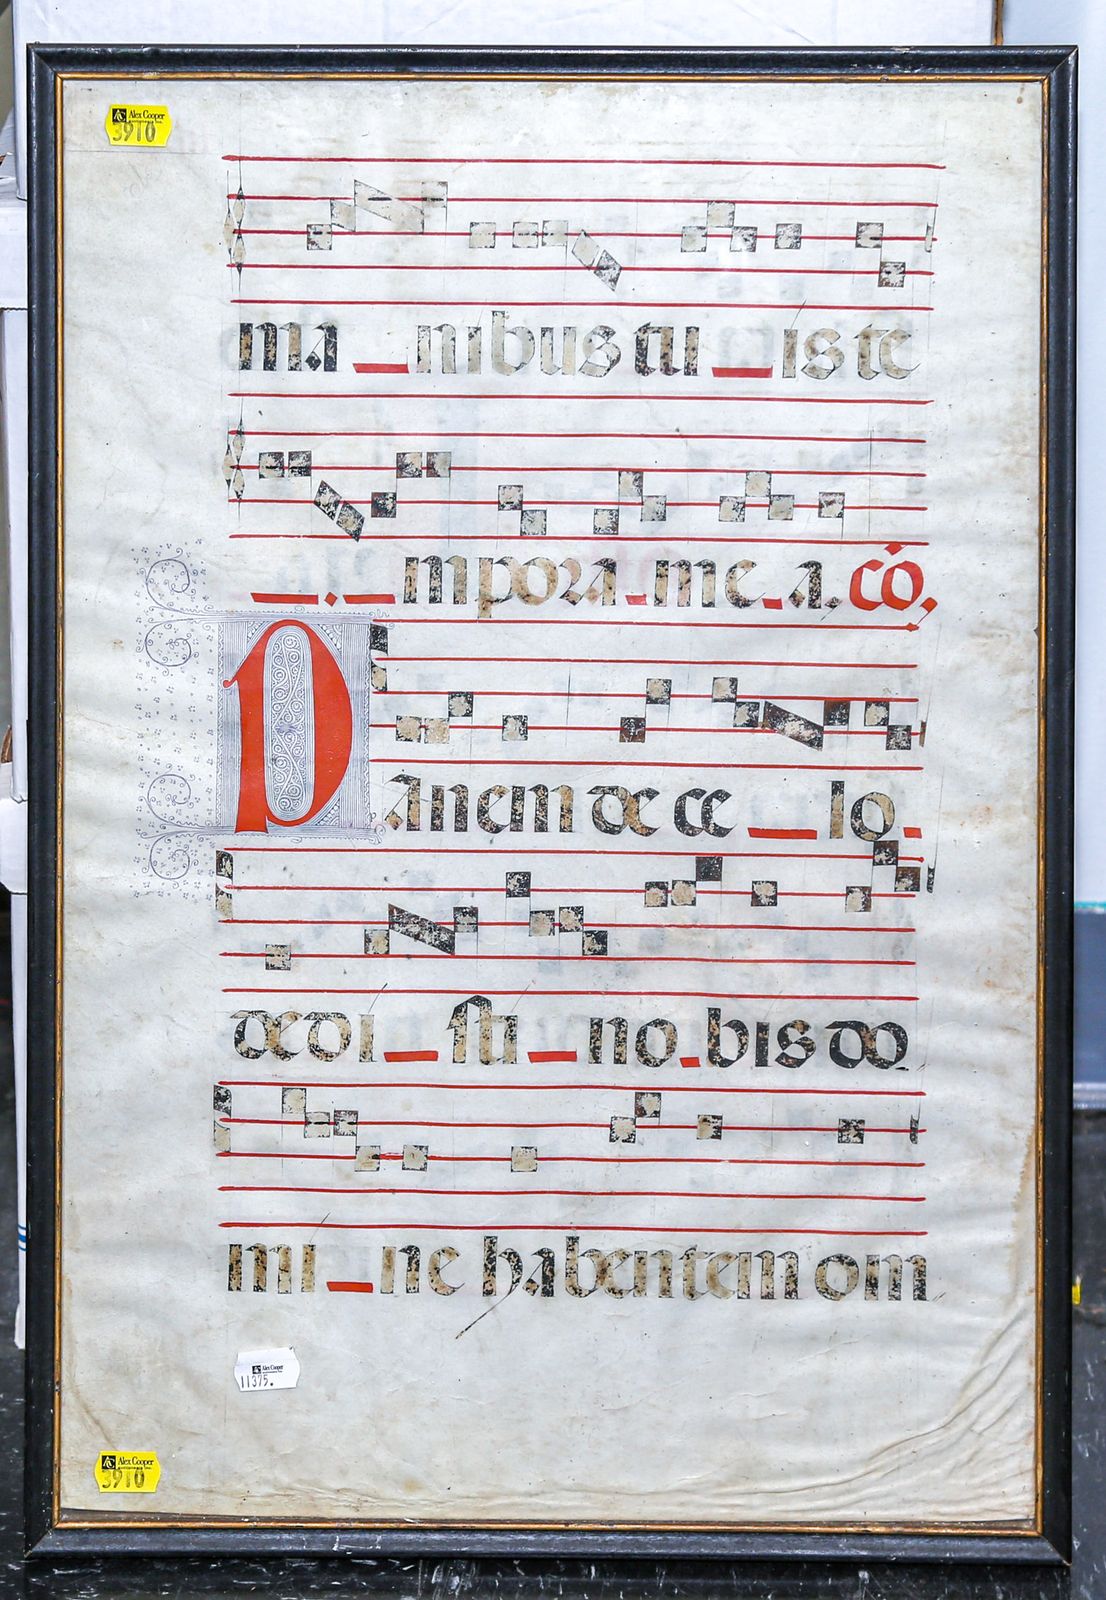 Alex Cooper
3910
ma_nibus tu_is te
_._mpora_me_a. cō,
Panem de ce_lo_
dedi_sti_no_bis do
mi_ne habentem om
Alex Cooper
11375.
Alex Cooper
3910